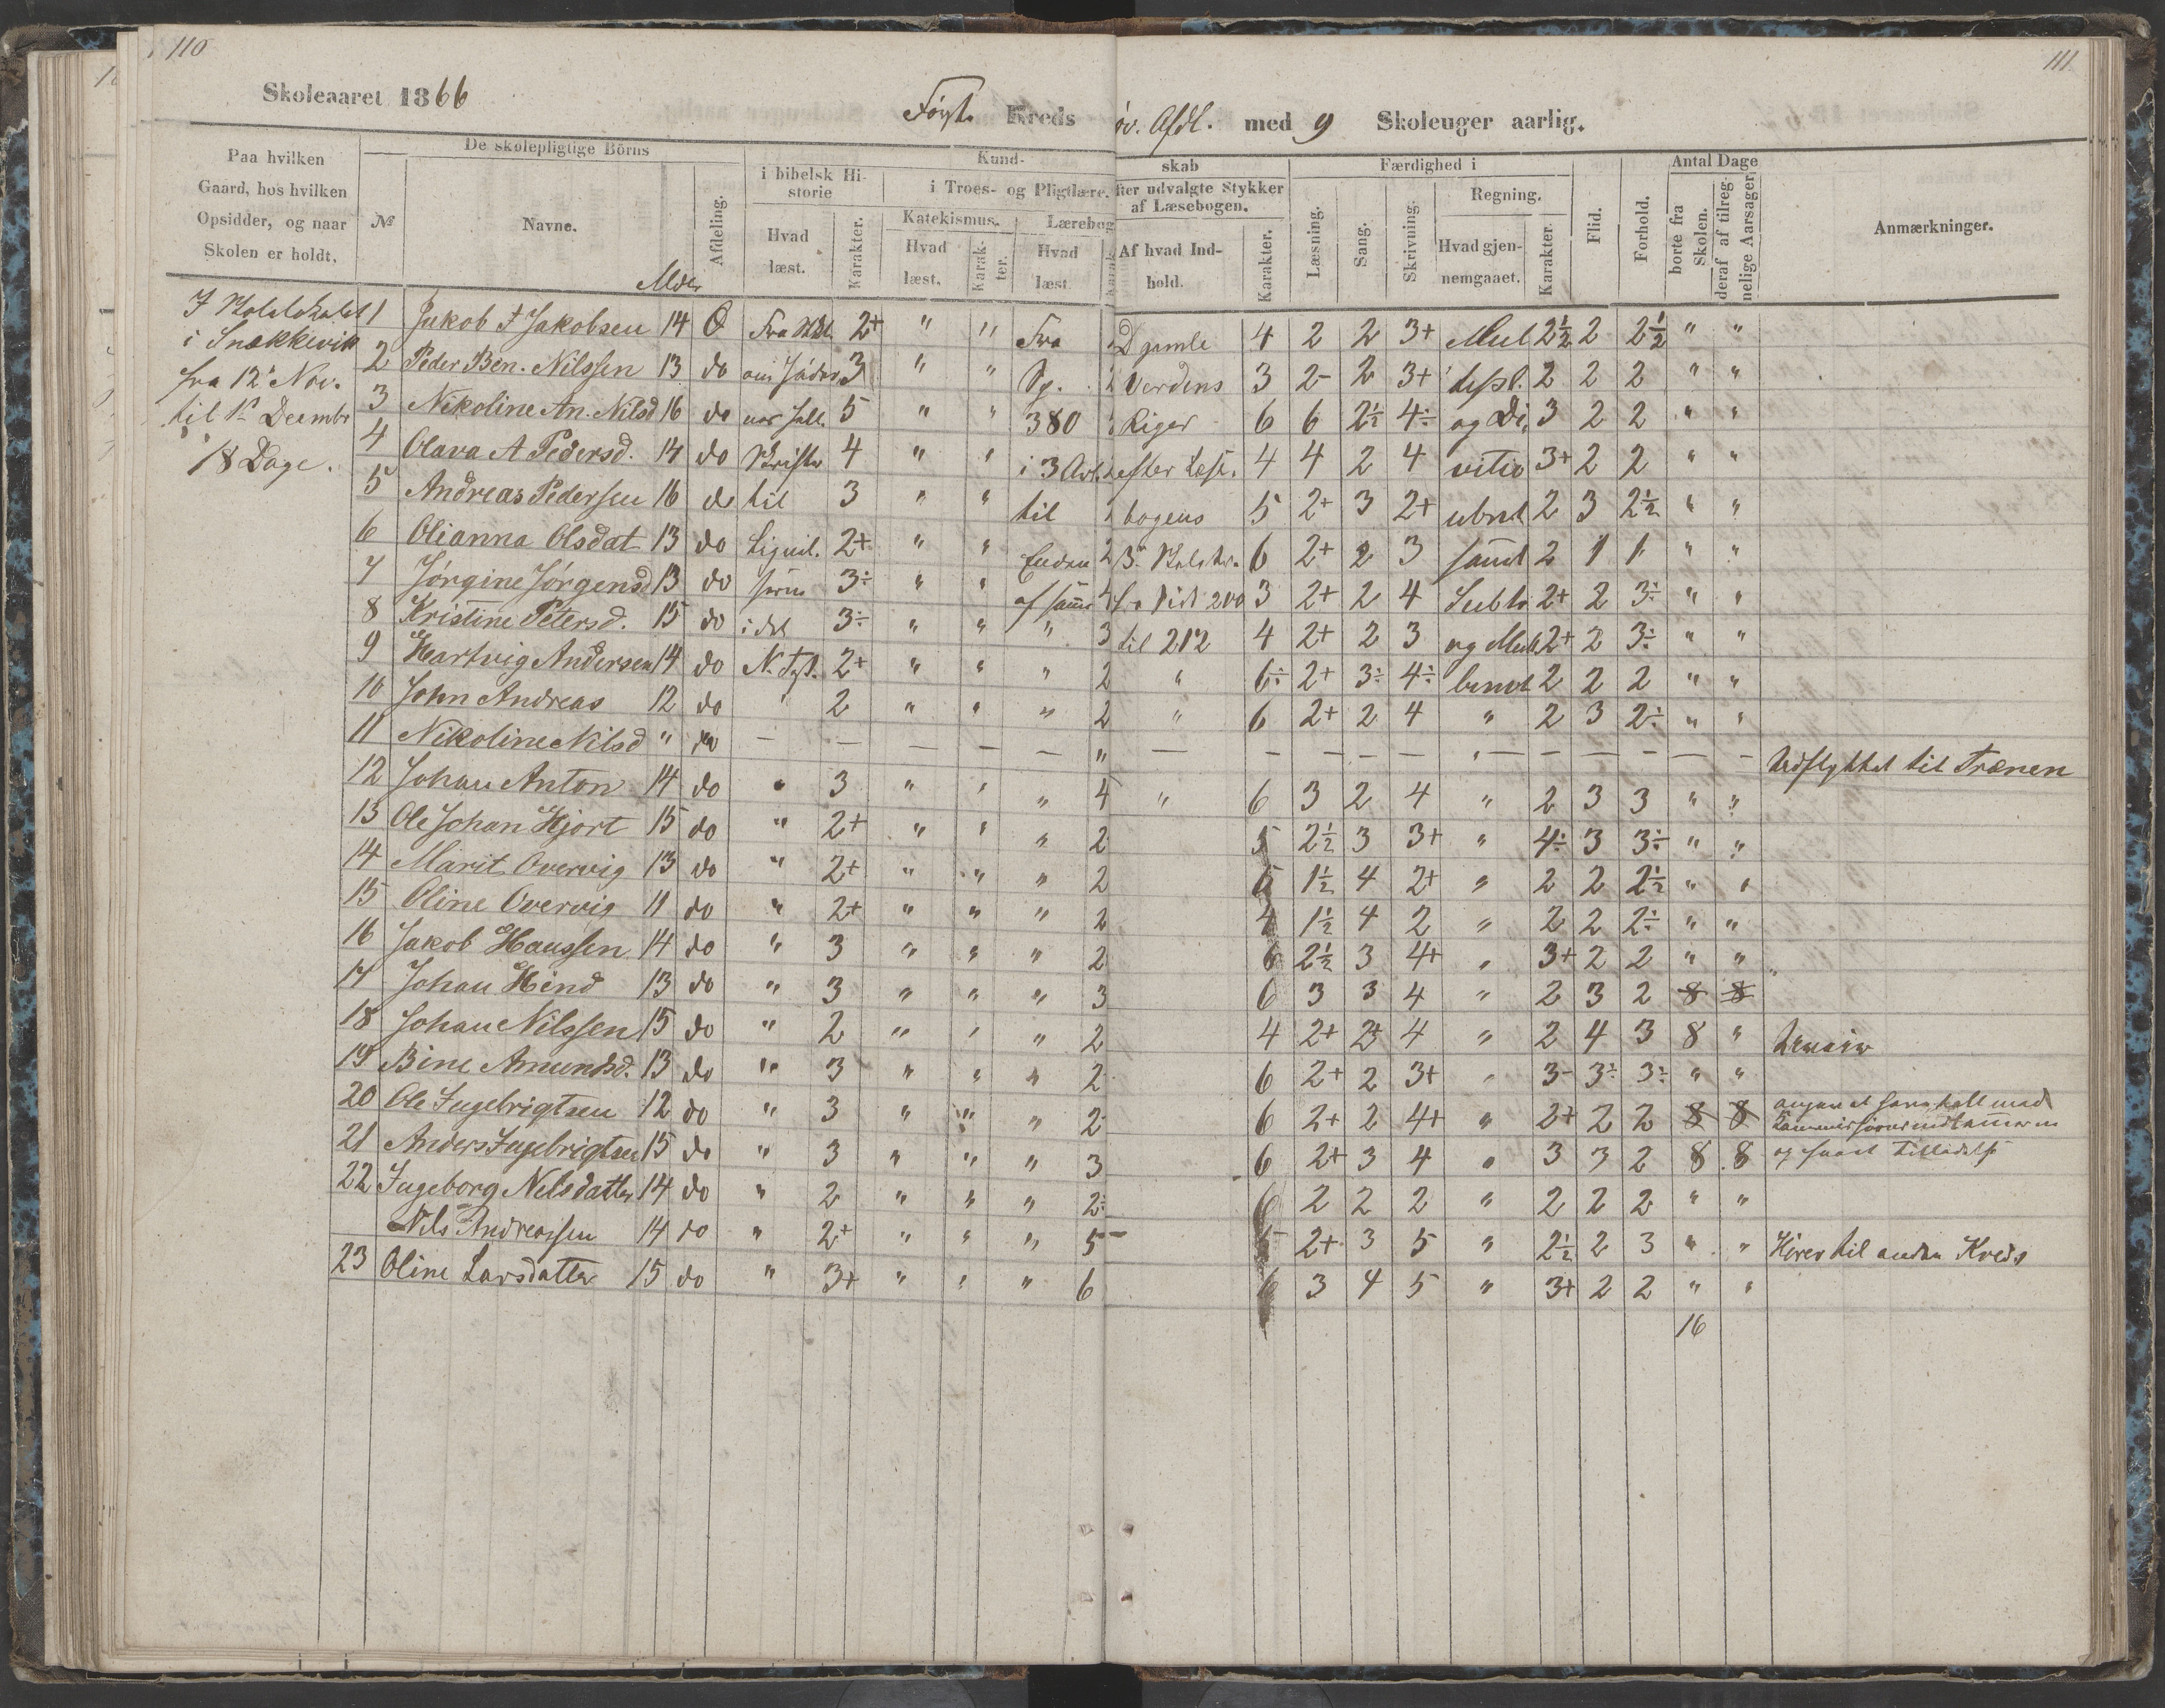 110
111
Skoleaaret 1866
Kreds
øv. Afdl. med 9 Skoleuger aarlig.
Paa hvilken
Gaard, hos hvilken
Opsidder, og naar
Skolen er holdt.
De skolepligtige Börns
№
Navne.
Alder
Afdeling.
i bibelsk Historie
Hvad læst.
Karakter.
Kundskab
i Troes- og Pligtlære.
Katekismus.
Hvad læst.
Karakter.
Lærebog
Hvad læst
Karak
fter udvalgte Stykker
af Læsebogen.
Af hvad Indhold.
Karakter.
Færdighed i
Læsning.
Sang.
Skrivning.
Regning.
Hvad gjennemgaaet.
Karakter.
Flid.
Forhold.
Antal Dage
borte fra Skolen.
deraf af tilregnelige Aarsager
Anmærkninger.
i Snekkevik
fra 12te Nov.
til 1ste Decembr
18 Dage.
1 Jakob F Jakobsen 14 Ø 2+ " " Fra D gamle 4 2 2 3+ Mul 2½ 2 2½ " "
2 Peder Ben. Nilssen 13 do 3 " " Pg. Verdens 3 2- 2 3+ 2 2 2 " "
3 Nikoline An. Nilsd 16 do 5 " " 380 Riger 6 6 2½ 4÷ og Di 3 2 2 " "
4 Olava A Pedersd. 14 do 4 " " i 3 Art. efter Læse. 4 4 2 4 3+ 2 2 " "
5 Andreas Pedersen 16 do til 3 " " til bogens 5 2+ 3 2+ 2 3 2½ " "
6 Olianna Olsdat 13 do 2+ " " Enden 2 6 2+ 2 3 samt 2 1 1 " "
7 Jörgine Jörgensd 13 do 3÷ " " af samme 200 3 2+ 2 4 Subtr 2+ 2 3÷ " "
8 Kristine Petersd. 15 do i det 3÷ " " " 3 til 212 4 2+ 2 3 og Mul 2+ 2 3÷ " "
9 Hartvig Andersen 14 do N. Tst. 2+ " " " 2 " 6÷ 2+ 3÷ 4÷ 2 2 2 " "
10 John Andreas 12 do " 2 " " " 2 " 6 2+ 2 4 " 2 3 2÷ " "
11 Nikoline Nilsd " do — — — — — " — — — — — — — — — — — Udflyttet til Trænen
12 Johan Anton 14 do " 3 " " " 4 " 6 3 2 4 " 2 3 3 " "
13 Ole Johan Hjort 15 do " 2+ " " " 2 5 2½ 3 3+ " 4÷ 3 3÷ " "
14 Marit Overvig 13 do " 2+ " " " 2 1½ 4 2+ " 2 2 2½ " "
15 Oline Overvig 11 do " 2+ " " " 2 4 1½ 4 2 " 2 2 2÷ " "
16 Jakob Hanssen 14 do " 3 " " " 2 6 2½ 3 4+ " 3+ 2 2 " "
17 Johan Hind 13 do " 3 " " " 3 6 3 3 4 " 2 3 2 8 8
18 Johan Nilssen 15 do " 2 " " " 2 4 2+ 2+ 4 " 2 4 3 8 "
19 Bine Amundsd. 13 do " 3 " " " 2 6 2+ 2 3+ " 3- 3÷ 3÷ " "
20 Ole Ingebrigtsen 12 do " 3 " " " 2 6 2+ 2 4+ " 2+ 2 2 8 8
21 Anders Ingebrigtsen 15 do " 3 " " " 3 6 2+ 3 4 " 3 3 2 8 8
22 Ingeborg Nelsdatter 14 do " 2 " " " 2÷ 6 2 2 2 " 2 2 2 " "
Nils Andreassen 14 do " 2+ " " " 5 2+ 3 5 " 2½ 2 3 " " Hörer til anden Kreds
23 Oline Larsdatter 15 do " 3+ " " " 6 6 3 4 5 " 3+ 2 2 " "
16